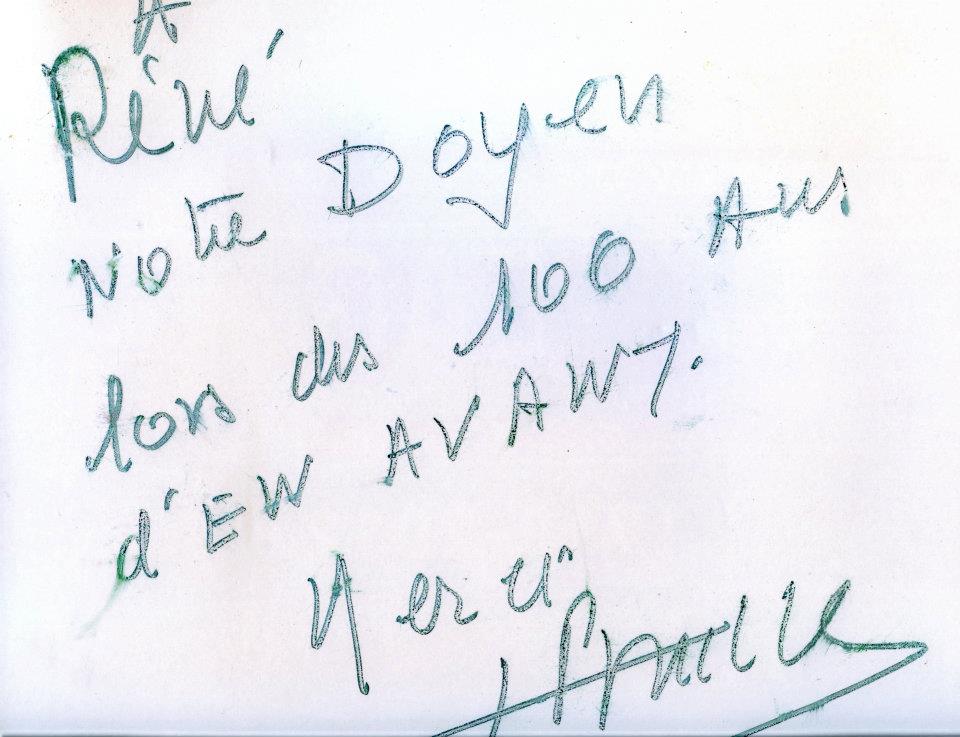 A
Réné
Notre Doyen
lors des 100 Ans
d'EN AVANT.
Merci